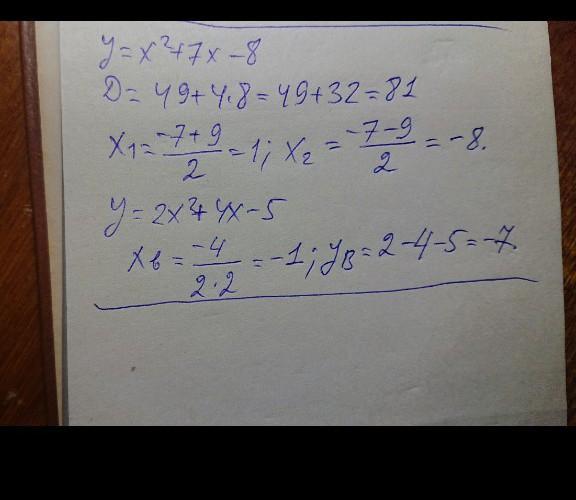 y = x² + 7x - 8
D = 49 + 4·8 = 49 + 32 = 81
x₁ = (-7+9)/2 = 1; x₂ = (-7-9)/2 = -8.
y = 2x² + 4x - 5
xв = -4/(2·2) = -1; yв = 2 - 4 - 5 = -7.